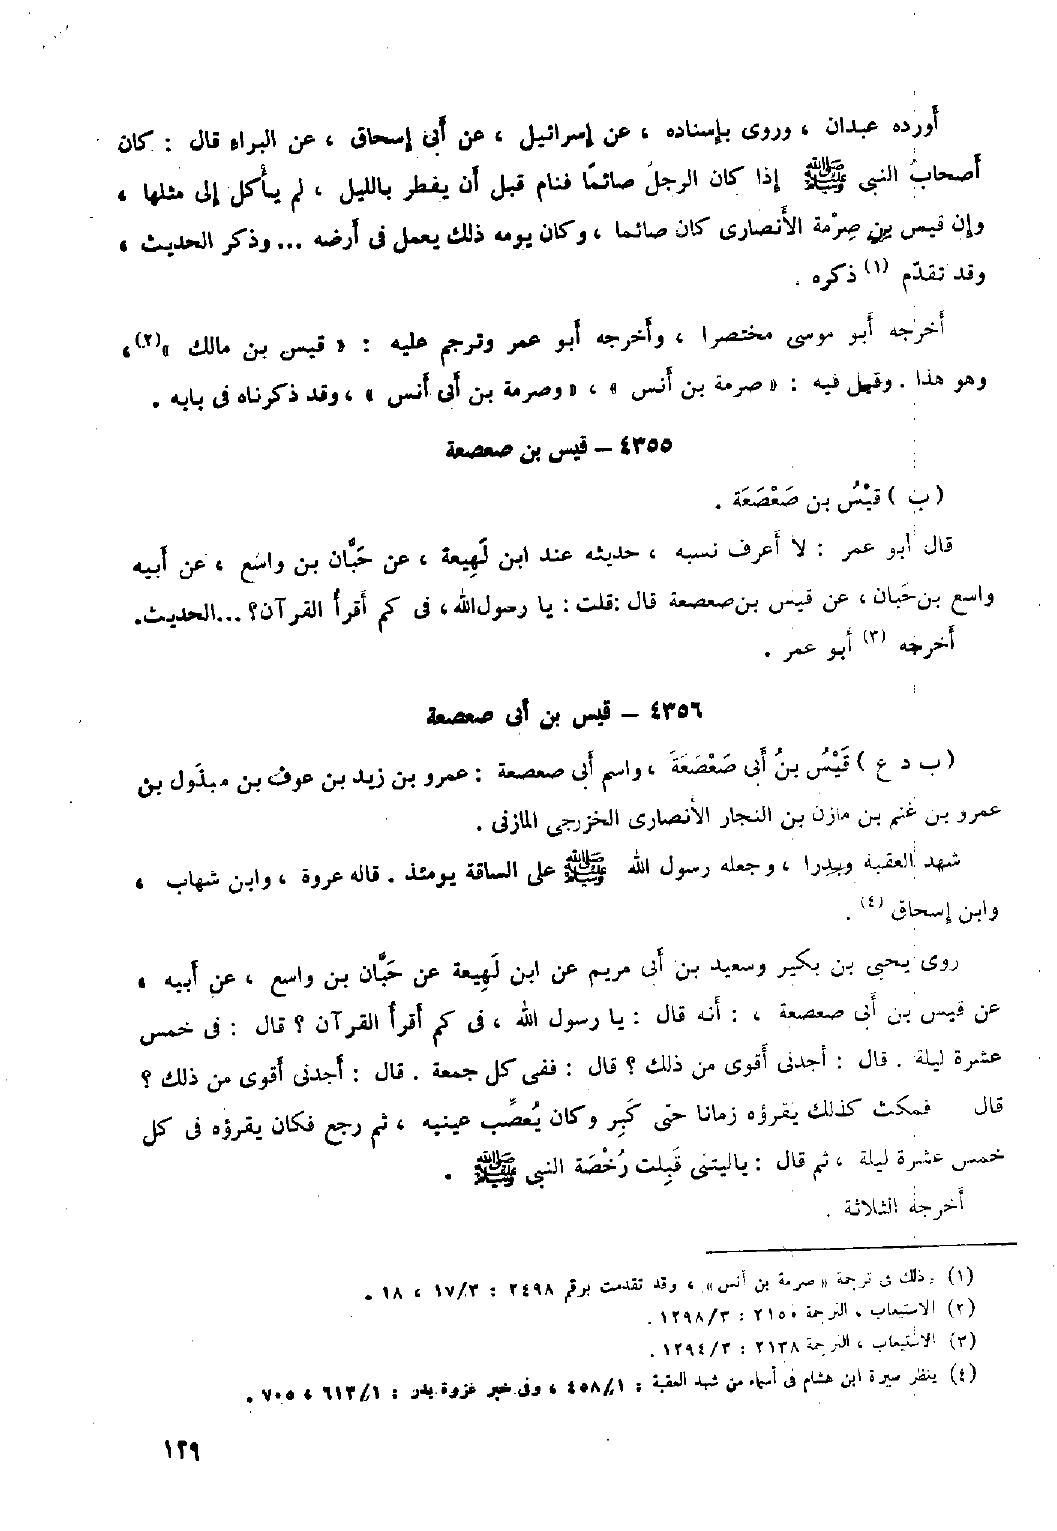 أورده عبدان ، وروى بإسناده ، عن إسرائيل ، عن أبى إسحاق ، عن البراء قال : كان
أصحابُ النبى ﷺ إذا كان الرجلُ صائمًا فنام قبل أن يفطر بالليل ، لم يأكل إلى مثلها ،
وإن قيس بن صِرْمة الأنصارى كان صائما ، وكان يومه ذلك يعمل فى أرضه ... وذكر الحديث ،
وقد تقدّم (١) ذكره .
أخرجه أبو موسى مختصرا ، وأخرجه أبو عمر وترجم عليه : « قيس بن مالك »(٢)،
وهو هذا . وقيل فيه : « صرمة بن أنس » ، « وصرمة بن أبى أنس » ، وقد ذكرناه فى بابه .
٤٣٥٥ – قيس بن صعصعة
( ب ) قيْسُ بن صَعْصَعَة .
قال أبو عمر : لا أعرف نسبه ، حديثه عند ابن لَهِيعة ، عن حَبَّان بن واسَع ، عن أبيه
واسع بن حَبان ، عن قيس بن صعصعة قال : قلت : يا رسول الله ، فى كم أقرأُ القرآن؟ ... الحديث.
أخرجه (٣) أبو عمر .
٤٣٥٦ – قيس بن أبى صعصعة
( ب د ع ) قَيْسُ بنُ أَبى صَعْصَعَةَ ، واسم أبى صعصعة : عمرو بن زيد بن عوف بن مبذول بن
عمرو بن غنم بن مازن بن النجار الأنصارى الخزرجى المازنى .
شهد العقبة وبدرا ، وجعله رسول الله ﷺ على الساقة يومئذ . قاله عروة ، وابن شهاب ،
وابن إسحاق (٤) .
روى يحيى بن بكير وسعيد بن أبى مريم عن ابن لَهِيعة عن حَبَّان بن واسع ، عن أبيه ،
عن قيس بن أبى صعصعة ، : أنه قال : يا رسول الله ، فى كم أقرأُ القرآن ؟ قال : فى خمس
عشرة ليلة . قال : أجدنى أقوى من ذلك ؟ قال : ففى كل جمعة . قال : أجدنى أقوى من ذلك ؟
قال فمكث كذلك يقرؤه زمانا حتى كَبِر وكان يُعصِّب عينيه ، ثم رجع فكان يقرؤه فى كل
خمس عشرة ليلة ، ثم قال : ياليتنى قَبِلت رُخْصَة النبى ﷺ .
أخرجه الثلاثة .
(١) ذلك فى ترجمة « صرمة بن أنس » ، وقد تقدمت برقم ٢٤٩٨ : ١٧/٣ ، ١٨ .
(٢) الاستيعاب ، الترجمة ٢١٥٠ : ١٢٩٨/٣ .
(٣) الاستيعاب ، الترجمة ٢١٣٨ : ١٢٩٤/٣ .
(٤) ينظر سيرة ابن هشام فى أسماء من شهد العقبة : ٤٥٨/١ ، وفى خبر غزوة بدر : ٦١٣/١ ، ٧٠٥ .
١٢٩